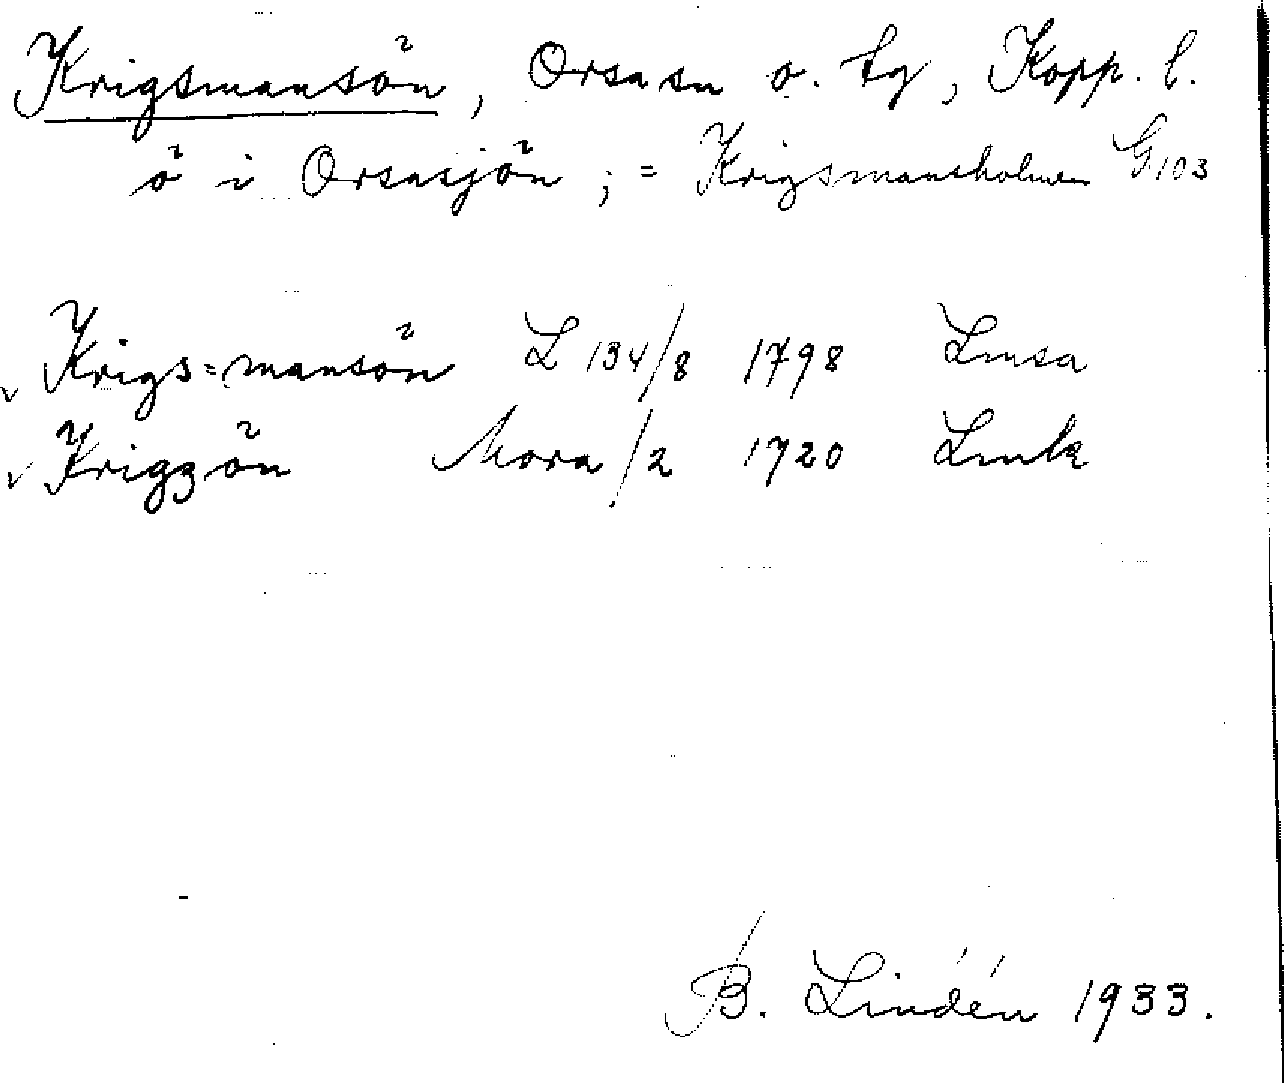 Krigsmansön, Orsa sn o. tg, Kopp. l.
ö i Orsasjön ; = Krigsmansholmen G103
Krigs=mansön L 134/8 1798 Lmsa
Krigzön Mora/2 1720 Lmk
B. Lindén 1933.